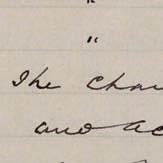 "
"
The Chan
and ac